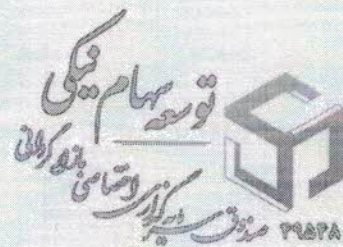 توسعه سهام نیکی
صندوق سرمایه‌گذاری اختصاصی بازارگردانی
۳۹۵۳۸